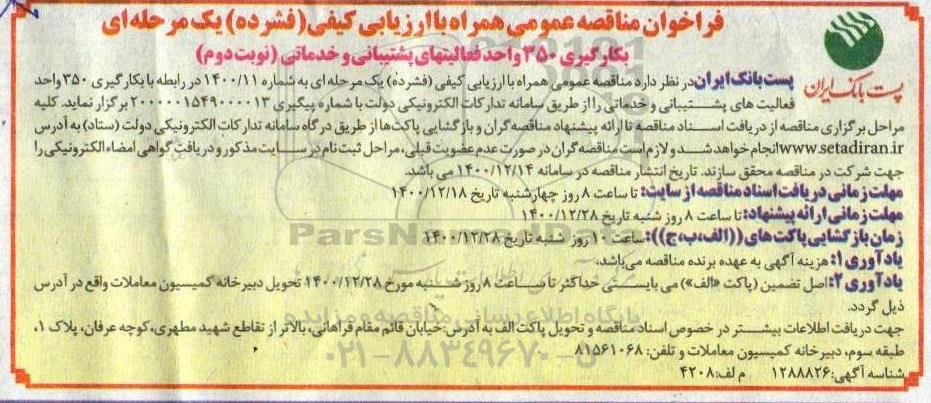 فراخوان مناقصه عمومی همراه با ارزیابی کیفی (فشرده) یک مرحله‌ای
بکارگیری ۳۵۰ واحد فعالیتهای پشتیبانی و خدماتی (نوبت دوم)
پست بانک ایران
پست بانک ایران در نظر دارد مناقصه عمومی همراه با ارزیابی کیفی (فشرده) یک مرحله ای به شماره ۱۴۰۰/۱۱ در رابطه با بکارگیری ۳۵۰ واحد
فعالیت های پشتیبانی و خدماتی را از طریق سامانه تدارکات الکترونیکی دولت با شماره پیگیری ۲۰۰۰۰۰۱۵۴۹۰۰۰۰۱۳ برگزار نماید. کلیه
مراحل برگزاری مناقصه از دریافت اسناد مناقصه تا ارائه پیشنهاد مناقصه گران و بازگشایی پاکت‌ها از طریق درگاه سامانه تدارکات الکترونیکی دولت (ستاد) به آدرس
www.setadiran.ir انجام خواهد شد و لازم است مناقصه گران در صورت عدم عضویت قبلی، مراحل ثبت نام در سایت مذکور و دریافت گواهی امضاء الکترونیکی را
جهت شرکت در مناقصه محقق سازند. تاریخ انتشار مناقصه در سامانه ۱۴۰۰/۱۲/۱۴ می باشد.
مهلت زمانی دریافت اسناد مناقصه از سایت: تا ساعت ۸ روز چهارشنبه تاریخ ۱۴۰۰/۱۲/۱۸
مهلت زمانی ارائه پیشنهاد: تا ساعت ۸ روز شنبه تاریخ ۱۴۰۰/۱۲/۲۸
زمان بازگشایی پاکت های ((الف،ب،ج)): ساعت ۱۰ روز شنبه تاریخ ۱۴۰۰/۱۲/۲۸
یادآوری ۱: هزینه آگهی به عهده برنده مناقصه می‌باشد.
یادآوری ۲: اصل تضمین (پاکت «الف») می بایستی حداکثر تا ساعت ۸ روز شنبه مورخ ۱۴۰۰/۱۲/۲۸ تحویل دبیرخانه کمیسیون معاملات واقع در آدرس
ذیل گردد.
جهت دریافت اطلاعات بیشتر در خصوص اسناد مناقصه و تحویل پاکت الف به آدرس: خیابان قائم مقام فراهانی، بالاتر از تقاطع شهید مطهری، کوچه عرفان، پلاک ۱،
طبقه سوم، دبیرخانه کمیسیون معاملات و تلفن: ۸۱۵۶۱۰۶۸
شناسه آگهی: ۱۲۸۸۸۲۶ م الف: ۴۲۰۸
ParsNamadData
پایگاه اطلاع رسانی مناقصه و مزایده
۰۲۱-۸۸۳۴۹۶۷۰